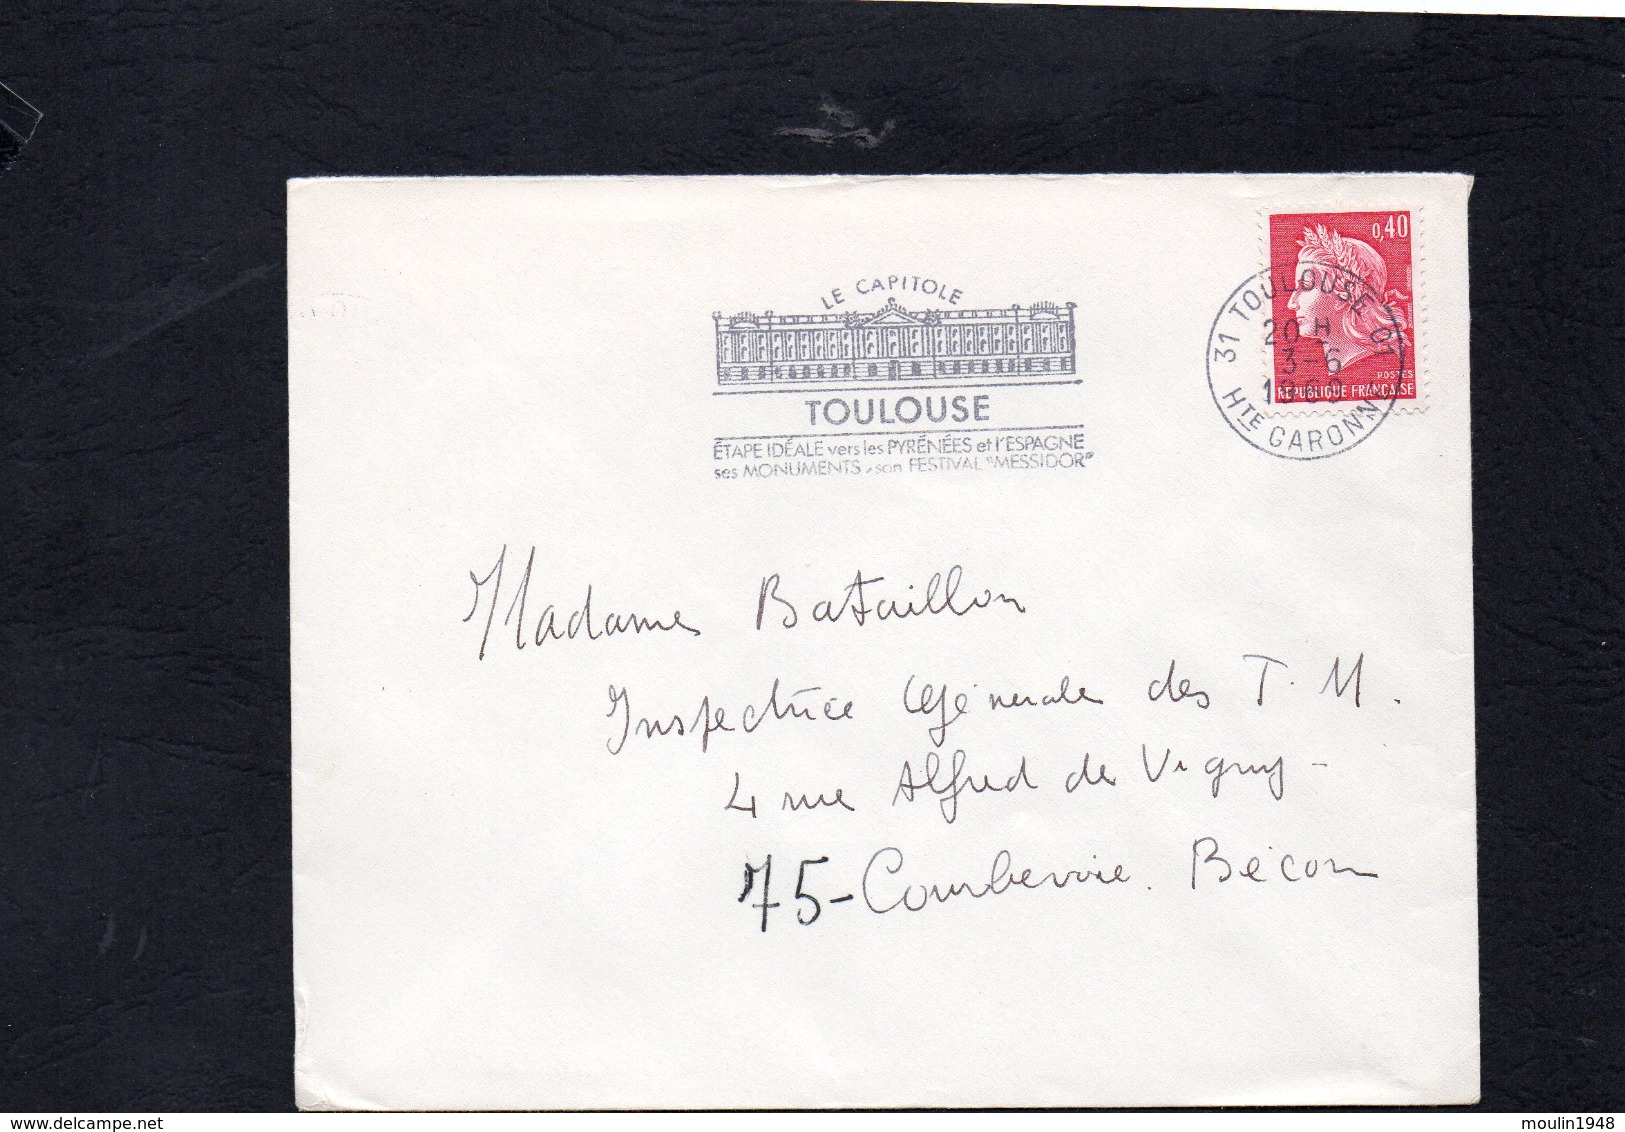 LE CAPITOLE
TOULOUSE
ÉTAPE IDÉALE vers les PYRÉNÉES et l'ESPAGNE
ses MONUMENTS, son FESTIVAL "MESSIDOR"
0,40
POSTES
REPUBLIQUE FRANÇAISE
31 TOULOUSE 01
20 H
3-6
1969
HTE GARONNE
Madame Bataillon
Inspectrice Générale des T. M.
4 rue Alfred de Vigny -
75 - Courbevoie. Bécon
www.delcampe.net
moulin1948